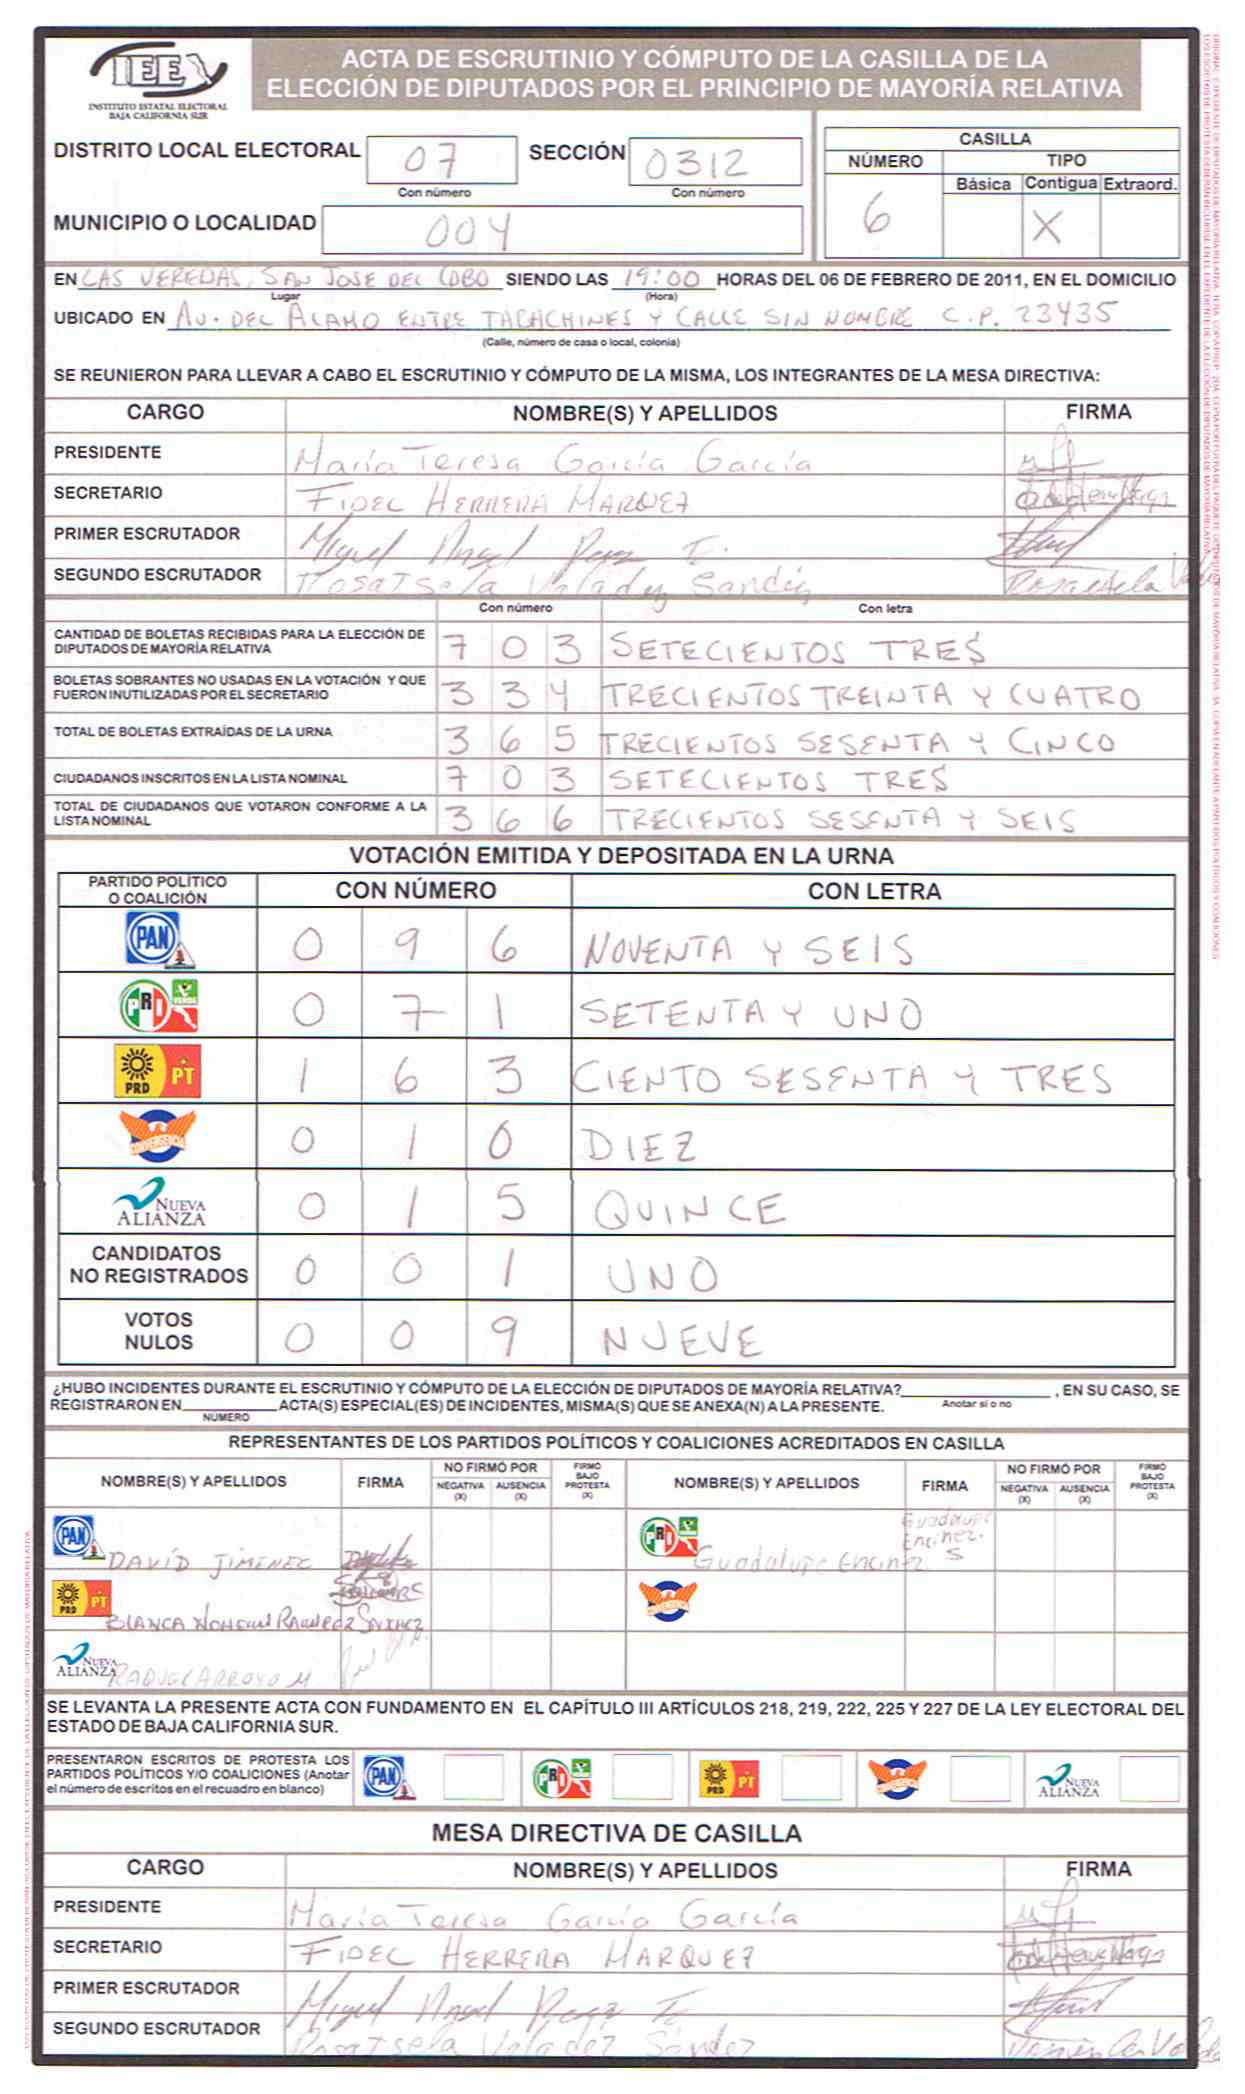 IEE
INSTITUTO ESTATAL ELECTORAL
BAJA CALIFORNIA SUR
ACTA DE ESCRUTINIO Y CÓMPUTO DE LA CASILLA DE LA
ELECCIÓN DE DIPUTADOS POR EL PRINCIPIO DE MAYORÍA RELATIVA
DISTRITO LOCAL ELECTORAL 07 SECCIÓN 0312
Con número Con número
MUNICIPIO O LOCALIDAD 004
CASILLA
NÚMERO TIPO
Básica Contigua Extraord.
6 X
EN LAS VEREDAS, SAN JOSE DEL CABO SIENDO LAS 19:00 HORAS DEL 06 DE FEBRERO DE 2011, EN EL DOMICILIO
Lugar (Hora)
UBICADO EN AV. DEL ALAMO ENTRE TABACHINES Y CALLE SIN NOMBRE C.P. 23435
(Calle, número de casa o local, colonia)
SE REUNIERON PARA LLEVAR A CABO EL ESCRUTINIO Y CÓMPUTO DE LA MISMA, LOS INTEGRANTES DE LA MESA DIRECTIVA:
CARGO NOMBRE(S) Y APELLIDOS FIRMA
PRESIDENTE María Teresa García García
SECRETARIO FIDEL HERRERA MARQUEZ
PRIMER ESCRUTADOR Miguel Angel
SEGUNDO ESCRUTADOR Valadez Sandez
Con número Con letra
CANTIDAD DE BOLETAS RECIBIDAS PARA LA ELECCIÓN DE
DIPUTADOS DE MAYORÍA RELATIVA 7 0 3 SETECIENTOS TRES
BOLETAS SOBRANTES NO USADAS EN LA VOTACIÓN Y QUE
FUERON INUTILIZADAS POR EL SECRETARIO 3 3 4 TRECIENTOS TREINTA Y CUATRO
TOTAL DE BOLETAS EXTRAÍDAS DE LA URNA 3 6 5 TRECIENTOS SESENTA Y CINCO
CIUDADANOS INSCRITOS EN LA LISTA NOMINAL 7 0 3 SETECIENTOS TRES
TOTAL DE CIUDADANOS QUE VOTARON CONFORME A LA
LISTA NOMINAL 3 6 6 TRECIENTOS SESENTA Y SEIS
VOTACIÓN EMITIDA Y DEPOSITADA EN LA URNA
PARTIDO POLÍTICO
O COALICIÓN CON NÚMERO CON LETRA
PAN 0 9 6 NOVENTA Y SEIS
PRI VERDE 0 7 1 SETENTA Y UNO
PRD PT 1 6 3 CIENTO SESENTA Y TRES
CONVERGENCIA 0 1 0 DIEZ
NUEVA ALIANZA 0 1 5 QUINCE
CANDIDATOS
NO REGISTRADOS 0 0 1 UNO
VOTOS
NULOS 0 0 9 NUEVE
¿HUBO INCIDENTES DURANTE EL ESCRUTINIO Y CÓMPUTO DE LA ELECCIÓN DE DIPUTADOS DE MAYORÍA RELATIVA? , EN SU CASO, SE
Anotar sí o no
REGISTRARON EN ACTA(S) ESPECIAL(ES) DE INCIDENTES, MISMA(S) QUE SE ANEXA(N) A LA PRESENTE.
NÚMERO
REPRESENTANTES DE LOS PARTIDOS POLÍTICOS Y COALICIONES ACREDITADOS EN CASILLA
NOMBRE(S) Y APELLIDOS FIRMA NO FIRMÓ POR NEGATIVA (X) AUSENCIA (X) FIRMÓ BAJO PROTESTA (X) NOMBRE(S) Y APELLIDOS FIRMA NO FIRMÓ POR NEGATIVA (X) AUSENCIA (X) FIRMÓ BAJO PROTESTA (X)
PAN DAVÍD JIMENEZ PRI Guadalupe Encinez Guadalupe Encinez S
PRD PT BLANCA RAMIREZ SANCHEZ CONVERGENCIA
NUEVA ALIANZA RAQUEL ARROYO M
SE LEVANTA LA PRESENTE ACTA CON FUNDAMENTO EN EL CAPÍTULO III ARTÍCULOS 218, 219, 222, 225 Y 227 DE LA LEY ELECTORAL DEL
ESTADO DE BAJA CALIFORNIA SUR.
PRESENTARON ESCRITOS DE PROTESTA LOS
PARTIDOS POLÍTICOS Y/O COALICIONES (Anotar
el número de escritos en el recuadro en blanco)
PAN PRI PRD PT CONVERGENCIA NUEVA ALIANZA
MESA DIRECTIVA DE CASILLA
CARGO NOMBRE(S) Y APELLIDOS FIRMA
PRESIDENTE María Teresa García García
SECRETARIO FIDEL HERRERA MARQUEZ
PRIMER ESCRUTADOR Miguel Angel
SEGUNDO ESCRUTADOR Valadez Sández